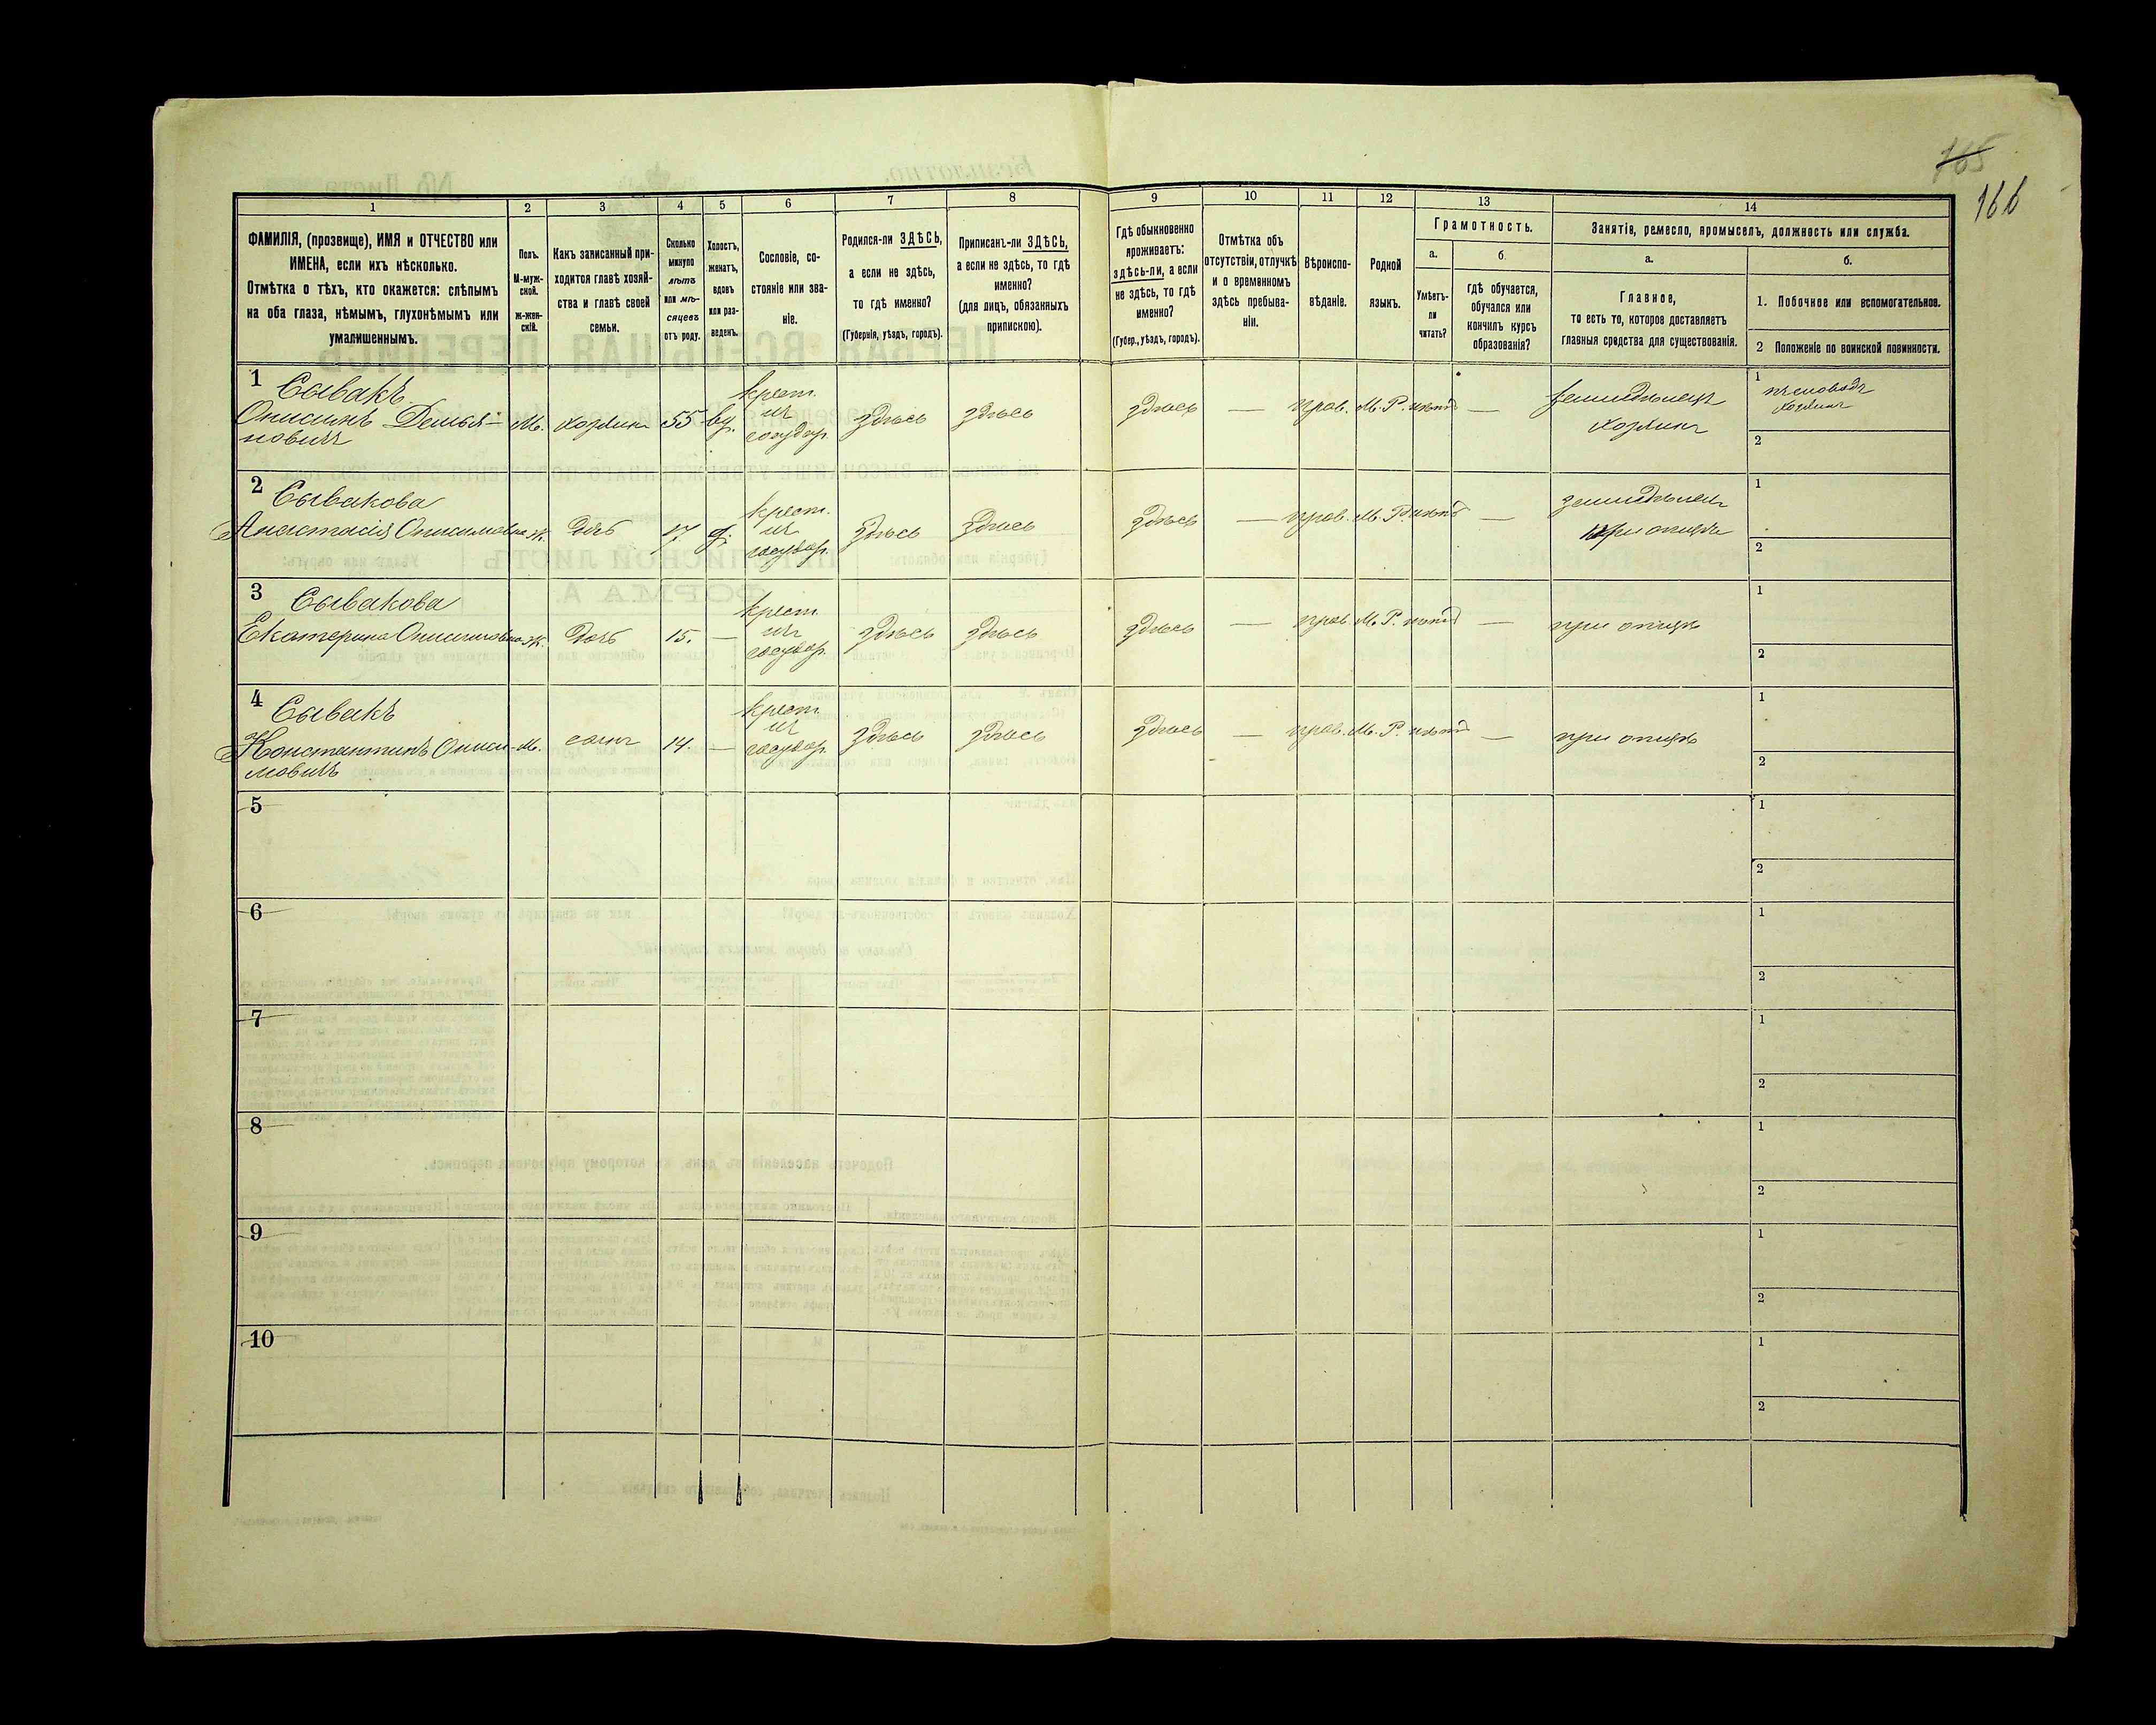 165
166
1
2
3
4
5
6
7
8
9
10
11
12
13
14
ФАМИЛІЯ, (прозвище), ИМЯ и ОТЧЕСТВО или
ИМЕНА, если ихъ нѣсколько.
Отмѣтка о тѣхъ, кто окажется: слѣпымъ
на оба глаза, нѣмымъ, глухонѣмымъ или
умалишеннымъ.
Полъ.
М-муж-
ской.
ж-жен-
скій.
Какъ записанный при-
ходится главѣ хозяй-
ства и главѣ своей
семьи.
Сколько
минуло
лѣтъ
или мѣ-
сяцевъ
отъ роду.
Холостъ,
женатъ,
вдовъ
или раз-
веденъ.
Сословіе, со-
стояніе или зва-
ніе.
Родился-ли ЗДѢСЬ,
а если не здѣсь,
то гдѣ именно?
(Губернія, уѣздъ, городъ).
Приписанъ-ли ЗДѢСЬ,
а если не здѣсь, то гдѣ
именно?
(для лицъ, обязанныхъ
припискою).
Гдѣ обыкновенно
проживаетъ:
здѣсь-ли, а если
не здѣсь, то гдѣ
именно?
(Губер., уѣздъ, городъ).
Отмѣтка объ
отсутствіи, отлучкѣ
и о временномъ
здѣсь пребыва-
ніи.
Вѣроиспо-
вѣданіе.
Родной
языкъ.
Грамотность.
а.
б.
Умѣетъ-
ли
читать?
гдѣ обучается,
обучался или
кончилъ курсъ
образованія?
Занятіе, ремесло, промыселъ, должность или служба.
а.
б.
Главное,
то есть то, которое доставляетъ
главныя средства для существованія.
1. Побочное или вспомогательное.
2 Положеніе по воинской повинности.
1 Сывакъ
Онисимъ Демья-
новичъ
М.
хозяинъ
55
вд.
крест.
из
государ.
здѣсь
здѣсь
здѣсь
—
прав.
М. Р.
нѣтъ
—
земледѣлецъ
хозяинъ
1
пчеловодъ
хозяинъ
2
2 Сывакова
Анастасія Онисимовна
Ж.
дочь
17.
д.
крест.
из
государ.
здѣсь
здѣсь
здѣсь
—
прав.
М. Р.
нѣтъ
—
земледѣлец
при отцѣ
1
2
3 Сывакова
Екатерина Онисимовна
Ж.
дочь
15.
—
крест.
из
государ.
здѣсь
здѣсь
здѣсь
—
прав.
М. Р.
нѣтъ
—
при отцѣ
1
2
4 Сывакъ
Константинъ Ониси-
мовичъ
М.
сынъ
14.
—
крест.
из
государ.
здѣсь
здѣсь
здѣсь
—
прав.
М. Р.
нѣтъ
—
при отцѣ
1
2
5
1
2
6
1
2
7
1
2
8
1
2
9
1
2
10
1
2